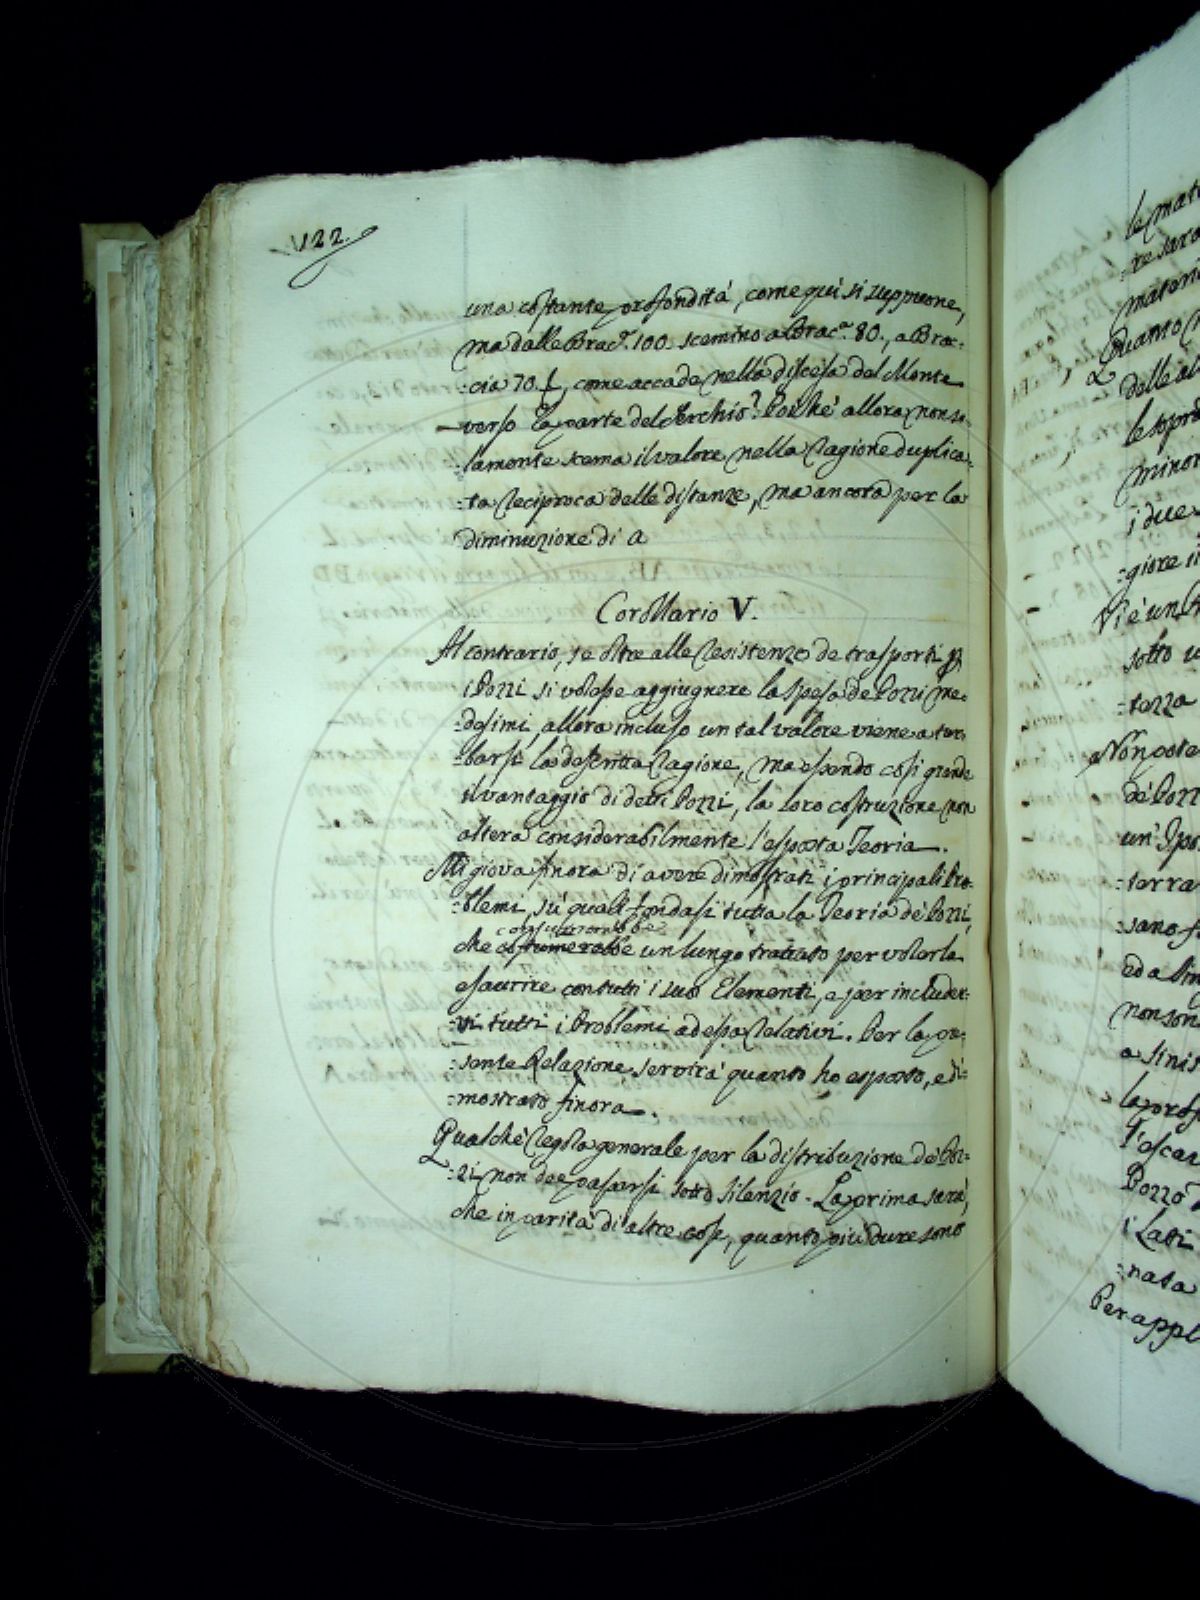 122.
una costante profondità, come quì si suppuone,
ma dalle Brac.ª 100. scemino a Brac.ª 80., a Brac:
:cia 70. &, come accade nella discesa del Monte
verso la parte del Serchio? Poichè allora non so:
:lamente scema il valore nella ragione duplica:
:ta reciproca delle distanze, ma ancora per la
diminuzione di a
Corollario V.
Al contrario, se oltre alle resistenze de trasporti p
i Pozzi si volesse aggiugnere la spesa de Pozzi me:
:desimi, allora incluso un tal valore viene a tur:
:barsi la descritta ragione, ma essendo così grande
il vantaggio di detti Pozzi, la loro costruzione non
altera considerabilmente l'esposta Teoria.
Mi giova finora di avere dimostrati i principali Pro:
:blemi, sù quali fondasi tutta la Teoria de' Pozzi,
consumerebbe
che costumerebbe un lungo trattato per volerla
esaurire con tutti i suoi Elementi, e per includer:
:vi tutti i Problemi ad essa relativi. Per la pre:
:sente Relazione servirà quanto ho esposto, e di:
:mostrato finora.
Qualche regola generale per la distribuzione de' Poz:
:zi non dee passarsi sotto silenzio. La prima sarà,
che in parità di altre cose, quanto più dure sono
le mat
:re sara
materi
Quanto
delle al
le sopra
minor
i due
:giore i
Vi è un
sotto u
:tezza
Non pote
de' Pozz
un' Ipo
:terra
:sano f
ed a Sin
non son
a sinis
la prof
l'escav
Pozzo
i Lati
:nata
Per appl